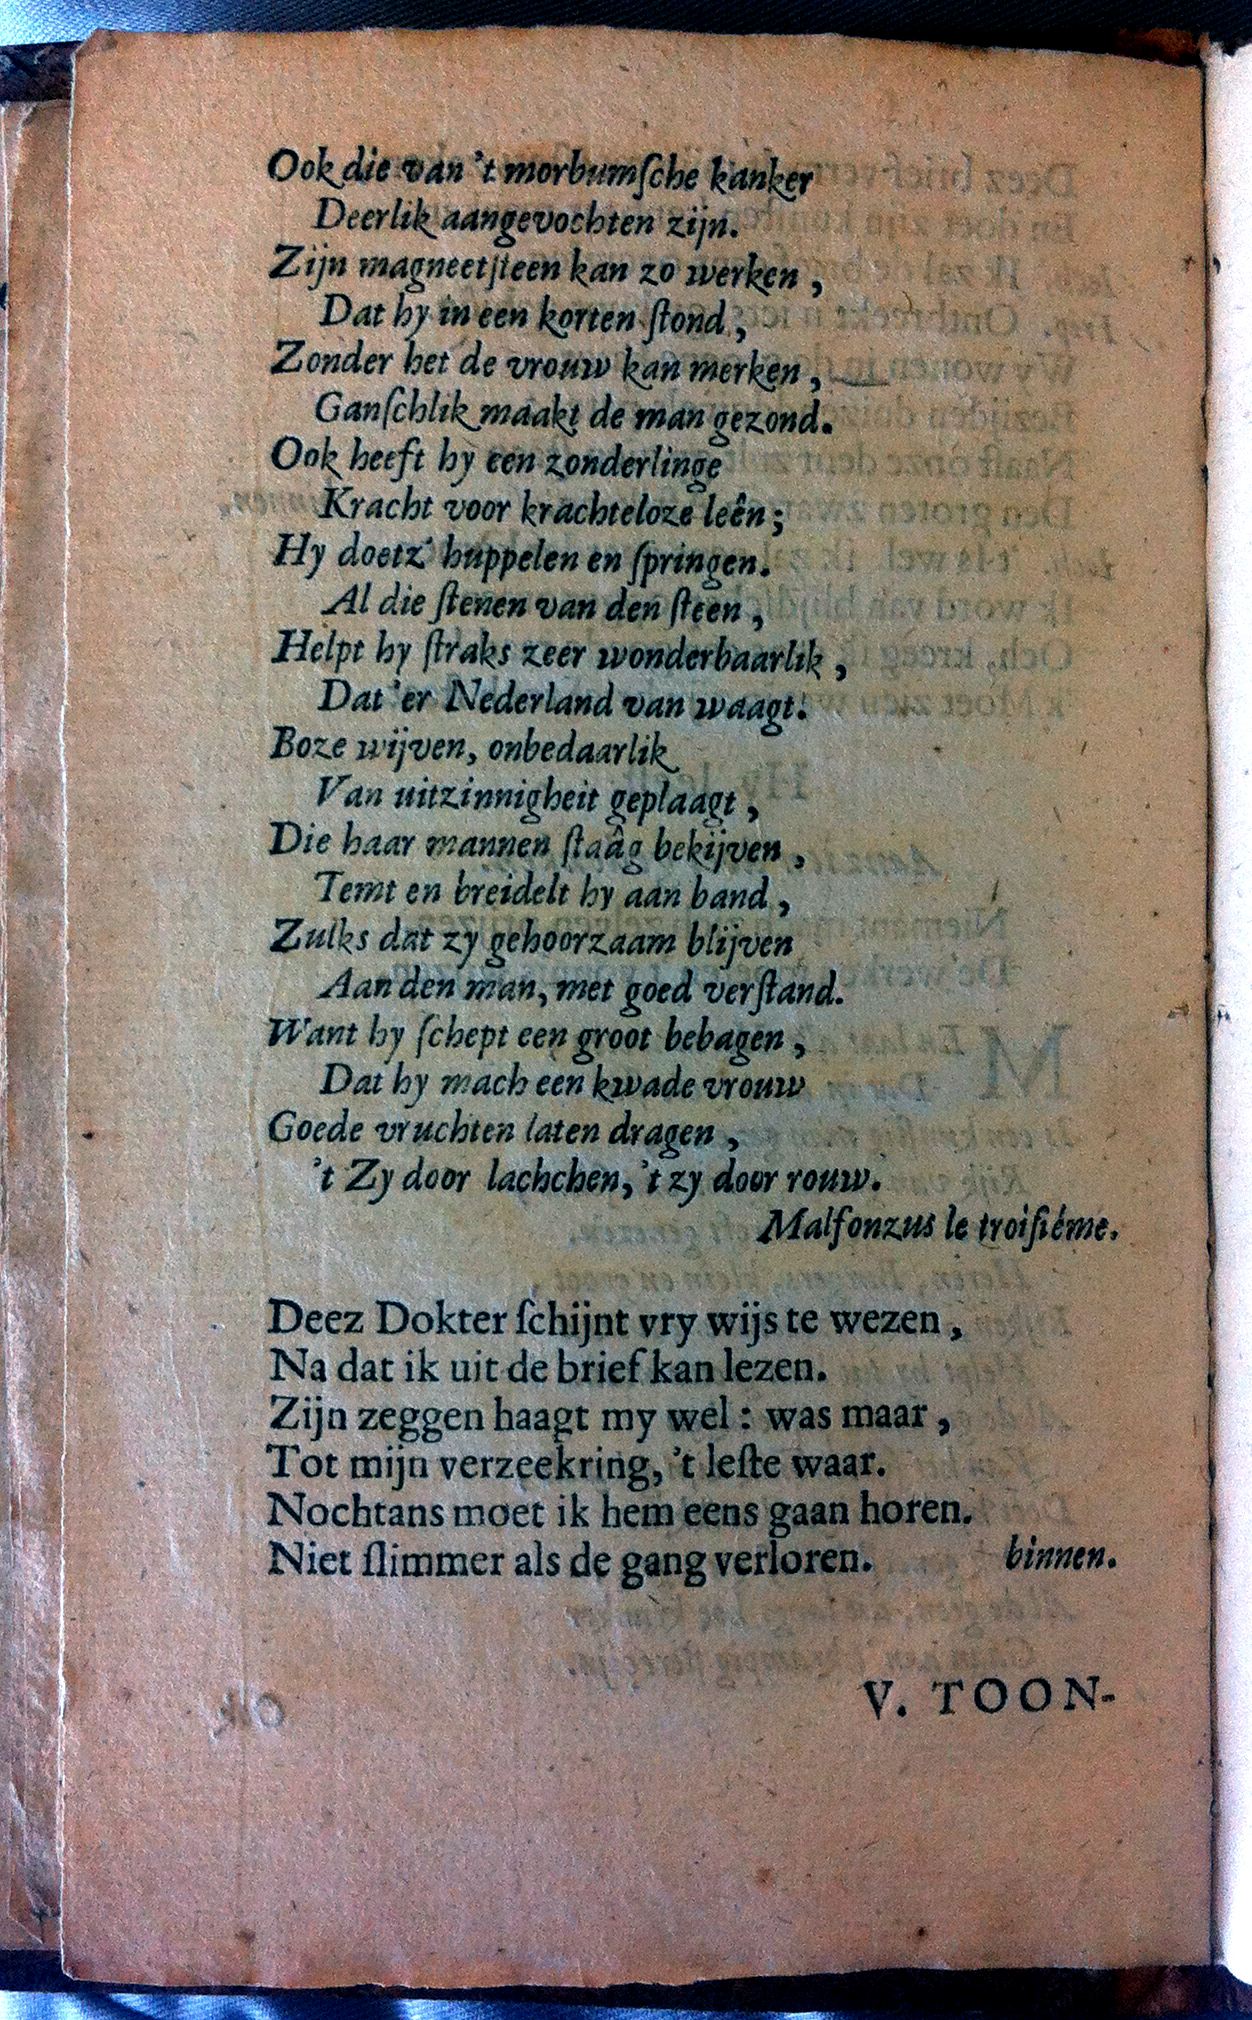 Ook die van 't morbumſche kanker
Deerlik aangevochten zijn.
Zijn magneetſteen kan zo werken,
Dat hy in een korten ſtond,
Zonder het de vrouw kan merken,
Ganſchlik maakt de man gezond.
Ook heeft hy een zonderlinge
Kracht voor krachteloze leên;
Hy doetz' huppelen en ſpringen.
Al die ſtenen van den ſteen,
Helpt hy ſtraks zeer wonderbaarlik,
Dat 'er Nederland van waagt.
Boze wijven, onbedaarlik
Van uitzinnigheit geplaagt,
Die haar mannen ſtaâg bekijven,
Temt en breidelt hy aan band,
Zulks dat zy gehoorzaam blijven
Aan den man, met goed verſtand.
Want hy ſchept een groot behagen,
Dat hy mach een kwade vrouw
Goede vruchten laten dragen,
't Zy door lachchen, 't zy door rouw.
Malfonzus le troiſiéme.
Deez Dokter ſchijnt vry wijs te wezen,
Na dat ik uit de brief kan lezen.
Zijn zeggen haagt my wel: was maar,
Tot mijn verzeekring, 't leſte waar.
Nochtans moet ik hem eens gaan horen.
Niet ſlimmer als de gang verloren. binnen.
V. TOON-